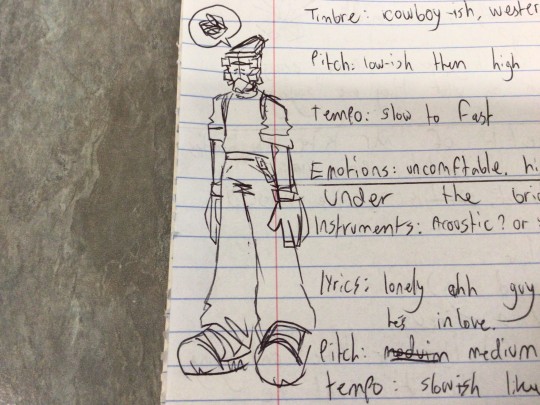 Timbre: cowboy-ish, wester
Pitch: low-ish then high
Tempo: slow to fast
Emotions: uncomftable. hi
under the bri
Instruments: Acoustic? or
lyrics: lonely ahh guy
he's in love.
Pitch: medium
tempo: slowish like